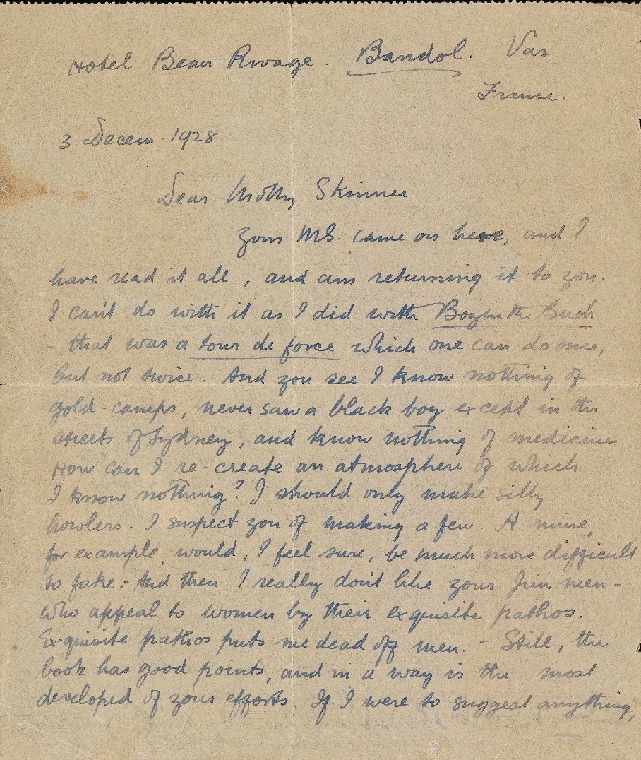 Hotel Beau Rivage. Bandol. Var
France.
3 Decem. 1928
Dear Molly Skinner
Your MS. came on here, and I
have read it all, and am returning it to you.
I can't do with it as I did with Boy in the Bush
- that was a tour de force which one can do once,
but not twice. And you see I know nothing of
gold-camps, never saw a black boy except in the
streets of Sydney, and know nothing of medicine
How can I re-create an atmosphere of which
I know nothing? I should only make silly
howlers. I suspect you of making a few. A mine,
for example, would, I feel sure, be much more difficult
to fake. And then I really don't like your Jim men -
who appeal to women by their exquisite pathos.
Exquisite pathos puts me dead off men. - Still, the
book has good points, and in a way is the most
developed of your efforts. If I were to suggest anything,